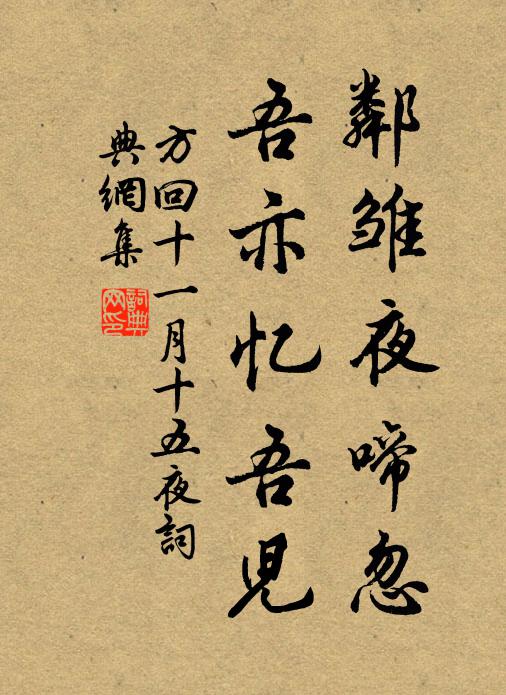 鄰雏夜啼忽
吾亦忆吾児
方回十一月十五夜詞
典網集
詞典网印